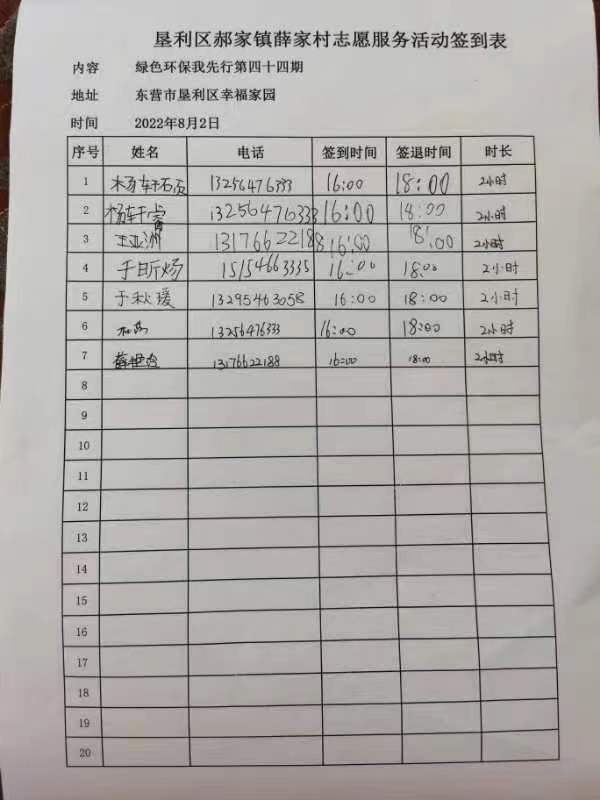 垦利区郝家镇薛家村志愿服务活动签到表
内容 绿色环保我先行第四十四期
地址 东营市垦利区幸福家园
时间 2022年8月2日
序号 姓名 电话 签到时间 签退时间 时长
1 杨轩硕 13256476333 16:00 18:00 2小时
2 杨轩睿 13256476333 16:00 18:00 2小时
3 王亚洲 13176622188 16:00 18:00 2小时
4 于昕炀 15154663335 16:00 18:00 2小时
5 于秋瑗 13295463058 16:00 18:00 2小时
6 13256476333 16:00 18:00 2小时
7 薛 13176622188 16:00 18:00 2小时
8
9
10
11
12
13
14
15
16
17
18
19
20